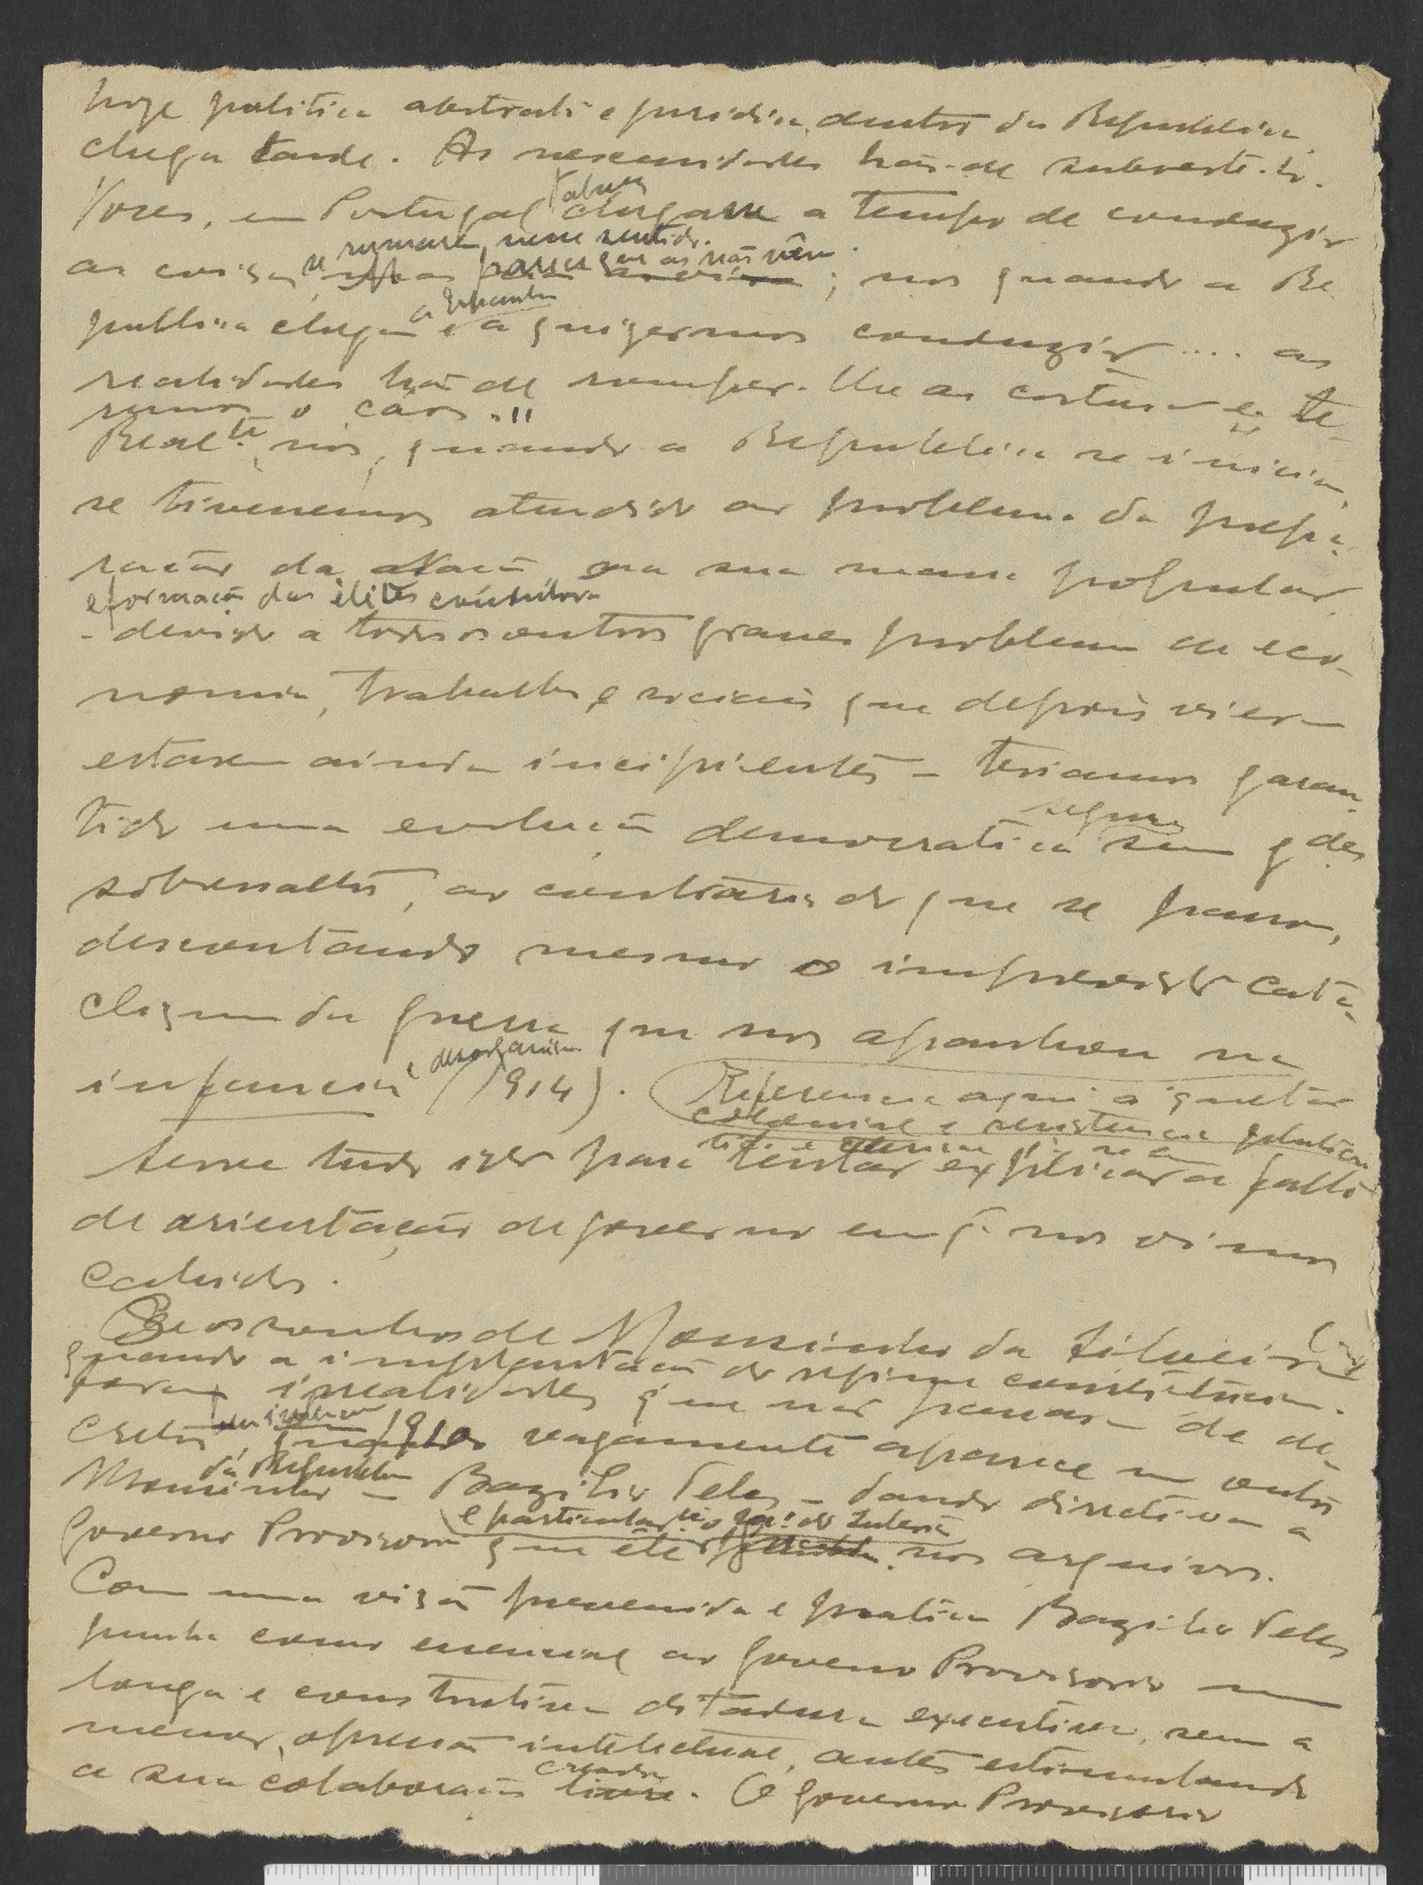 hoje politica abstrata e juridica, dentro da Republica,
chega tarde. As necessidades hão-de subverte-la.
Vocês, em Portugal talvez chegassem a tempo de conduzir
se rumarem nesse sentido.
as coisas, para que as não vêm; mas quando a Re
a Espanha
publica chegar e a quizermos conduzir .... as
realidades hão de romper-lhe as costuras e te-
remos o cáos."
Realte., nós, quando a Republica se iniciou,
se tivessemos atendido ao problema da prepa-
ração da Nação na sua massa popular
e formação das élites
- devido a todos os outros graves problemas de eco-
nomia, trabalho, e sociais que depois vieram
estarem ainda incipientes - teriamos garan-
tido uma evolução democratica segura sem gdes
sobresaltos, ao contrário do que se passou,
descontando mesmo o imprevisto cata-
clismo da guerra que nos apanhou na
infancia e desorganisou (1914). (Referencia aqui á questão
colonial e resistencia
Serve tudo isto para tentar explicar a falta
de orientação de governo em q. nos vimos
cahidos.
Se os sonhos de Mousinho da Silveira
quando a implantação do regimen constitucional
foram irrealidades que não passaram de de-
cretos, 1910 vagamente aparece um outro
Mousinho da Republica - Bazilio Teles - dando directivas a
e particular
Governo Provisorio que êle nos arquivos.
Com uma visão prevenida e pratica Bazilio Teles
punha como essencial ao Governo Provisorio uma
longa e construtiva ditadura executiva, sem a
menor opressão intelectual, antes estimulando
a sua colaboração creadora livre. O Governo Provisorio